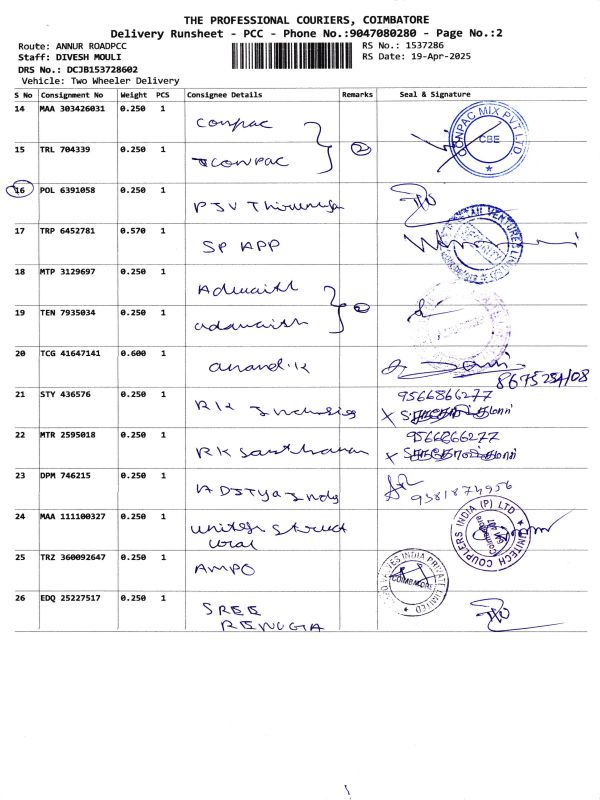 THE PROFESSIONAL COURIERS, COIMBATORE
Delivery Runsheet - PCC - Phone No.:9047080280 - Page No.:2
Route: ANNUR ROADPCC
RS No.: 1537286
Staff: DIVESH MOULI
RS Date: 19-Apr-2025
DRS No.: DCJB153728602
Vehicle: Two Wheeler Delivery
S No Consignment No Weight PCS Consignee Details Remarks Seal & Signature
14 MAA 303426031 0.250 1 conpac CONPAC MIX PVT LTD CBE
15 TRL 704339 0.250 1 CONPAC 2
16 POL 6391058 0.250 1 PSV
17 TRP 6452781 0.570 1 SP APP
18 MTP 3129697 0.250 1 Adwaith
19 TEN 7935034 0.250 1 adawaith
20 TCG 41647141 0.600 1 anand.K
21 STY 436576 0.250 1 RK 9566866277
22 MTR 2595018 0.250 1 RK 9566866277
23 DPM 746215 0.250 1 ADITYA Inds 9381874956
24 MAA 111100327 0.250 1 unitech UNITECH COUPLERS INDIA (P) LTD
25 TRZ 360092647 0.250 1 AMPO INDIA PRIVATE LIMITED COIMBATORE
26 EDQ 25227517 0.250 1 SREE
RENUGA